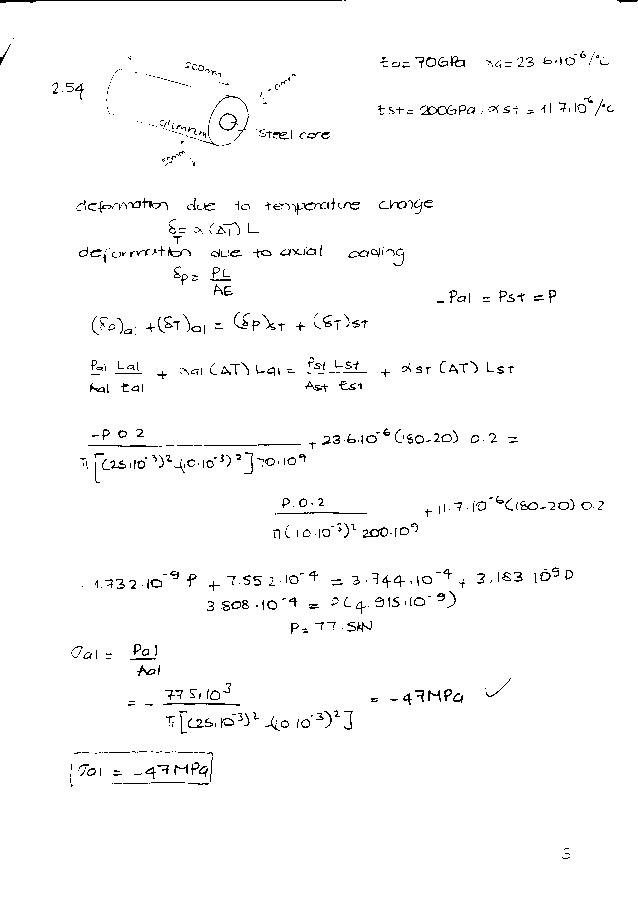 2.54
200mm
20mm
Ea = 70GPa αa = 23.6·10⁻⁶/°C
Est = 200GPa, αst = 11.7·10⁻⁶/°C
aluminum
Steel core
50mm
deformation due to temperature change
δT = α(ΔT)L
deformation due to axial loading
δP = PL/AE
-Pal = Pst = P
(δP)al + (δT)al = (δP)st + (δT)st
Pal Lal/Aal Eal + αal(ΔT)Lal = Pst Lst/Ast Est + αst(ΔT)Lst
-P 0.2/π[(25·10⁻³)²-(10·10⁻³)²]70·10⁹ + 23.6·10⁻⁶(180-20) 0.2 =
P·0.2/π(10·10⁻³)² 200·10⁹ + 11.7·10⁻⁶(180-20)0.2
-1.732·10⁻⁹P + 7.552·10⁻⁴ = 3.744·10⁻⁴ + 3.183 10⁻⁹P
3.808·10⁻⁴ = P(4.915·10⁻⁹)
P = 77.5kN
σal = Pal/Aal
= - 77.5·10³/π[(25·10⁻³)²-(10·10⁻³)²] = -47MPa ✓
σal = -47MPa